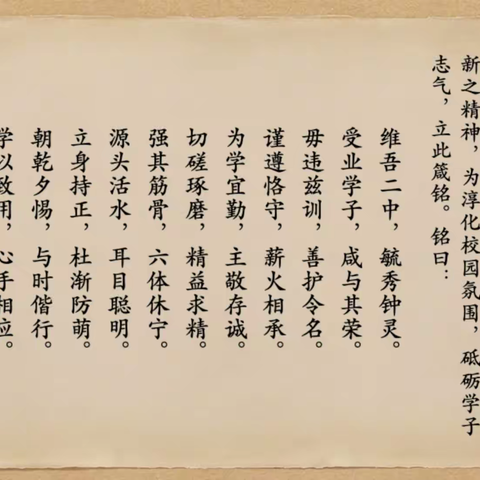 新之精神，为淳化校园氛围，砥砺学子
志气，立此箴铭。铭曰：
维吾二中，毓秀钟灵。
受业学子，咸与其荣。
毋违兹训，善护令名。
谨遵恪守，薪火相承。
为学宜勤，主敬存诚。
切磋琢磨，精益求精。
强其筋骨，六体休宁。
源头活水，耳目聪明。
立身持正，杜渐防萌。
朝乾夕惕，与时偕行。
学以致用，心手相应。